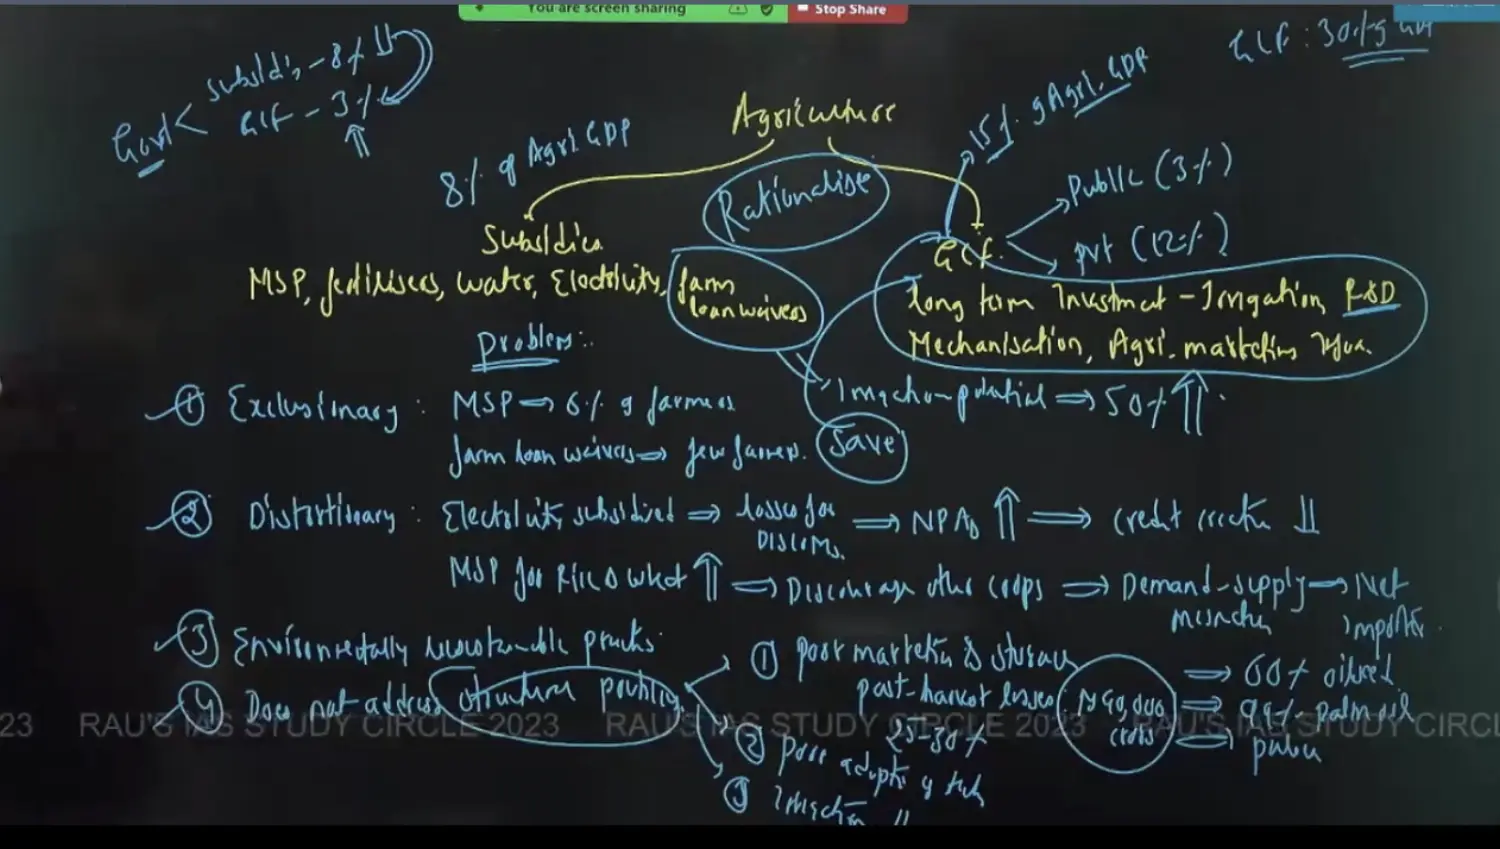 You are screen sharing
Stop Share
Govt
Subsidies - 8%
GCF - 3%
GCF : 30% of GDP
Agriculture
8% of Agri. GDP
Rationalise
15% of Agri. GDP
Subsidies
GCF
Public (3%)
pvt (12%)
MSP, fertilisers, water, Electricity, farm loan waivers
long term Investment - Irrigation, R&D
Mechanisation, Agri. marketing
Problems:
① Exclusionary : MSP → 6% of farmers
farm loan waivers → few farmers.
Irrigation potential → 50%
Save
② Distortionary : Electricity subsidised → losses for DISCOMs. → NPAs ⇑ → credit ⇓
MSP for Rice & wheat ⇑ → Discourage other crops → Demand-supply mismatch → Net importer.
③ Environmentally unsustainable
④ Does not address structural
① poor marketing & storage
post-harvest losses:
25-30%
₹ 90,000 crores
→ 60% oilseed
→ 99% palm oil
→ pulses
② poor adoption of tech
③ Irrigation ⇓
23 RAU'S IAS STUDY CIRCLE 2023 RAU'S IAS STUDY CIRCLE 2023 RAU'S IAS STUDY CIRCL